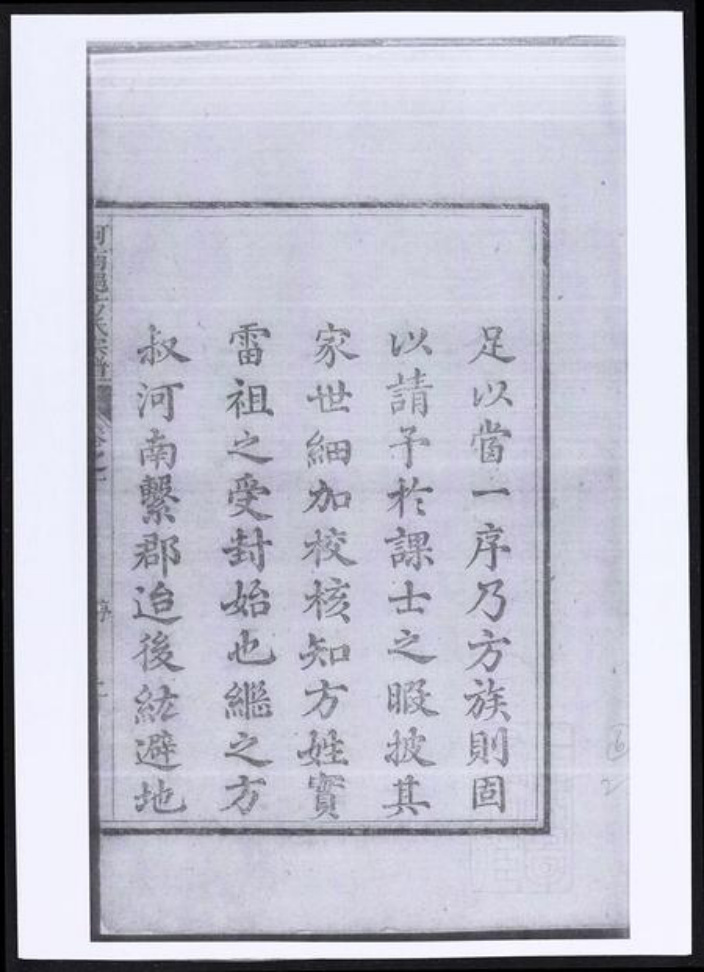 足以當一序乃方族則固
以請予於課士之暇披其
家世細加校核知方姓實
雷祖之受封始也繼之方
叔河南繫郡迨後紘避地
方氏宗譜
序